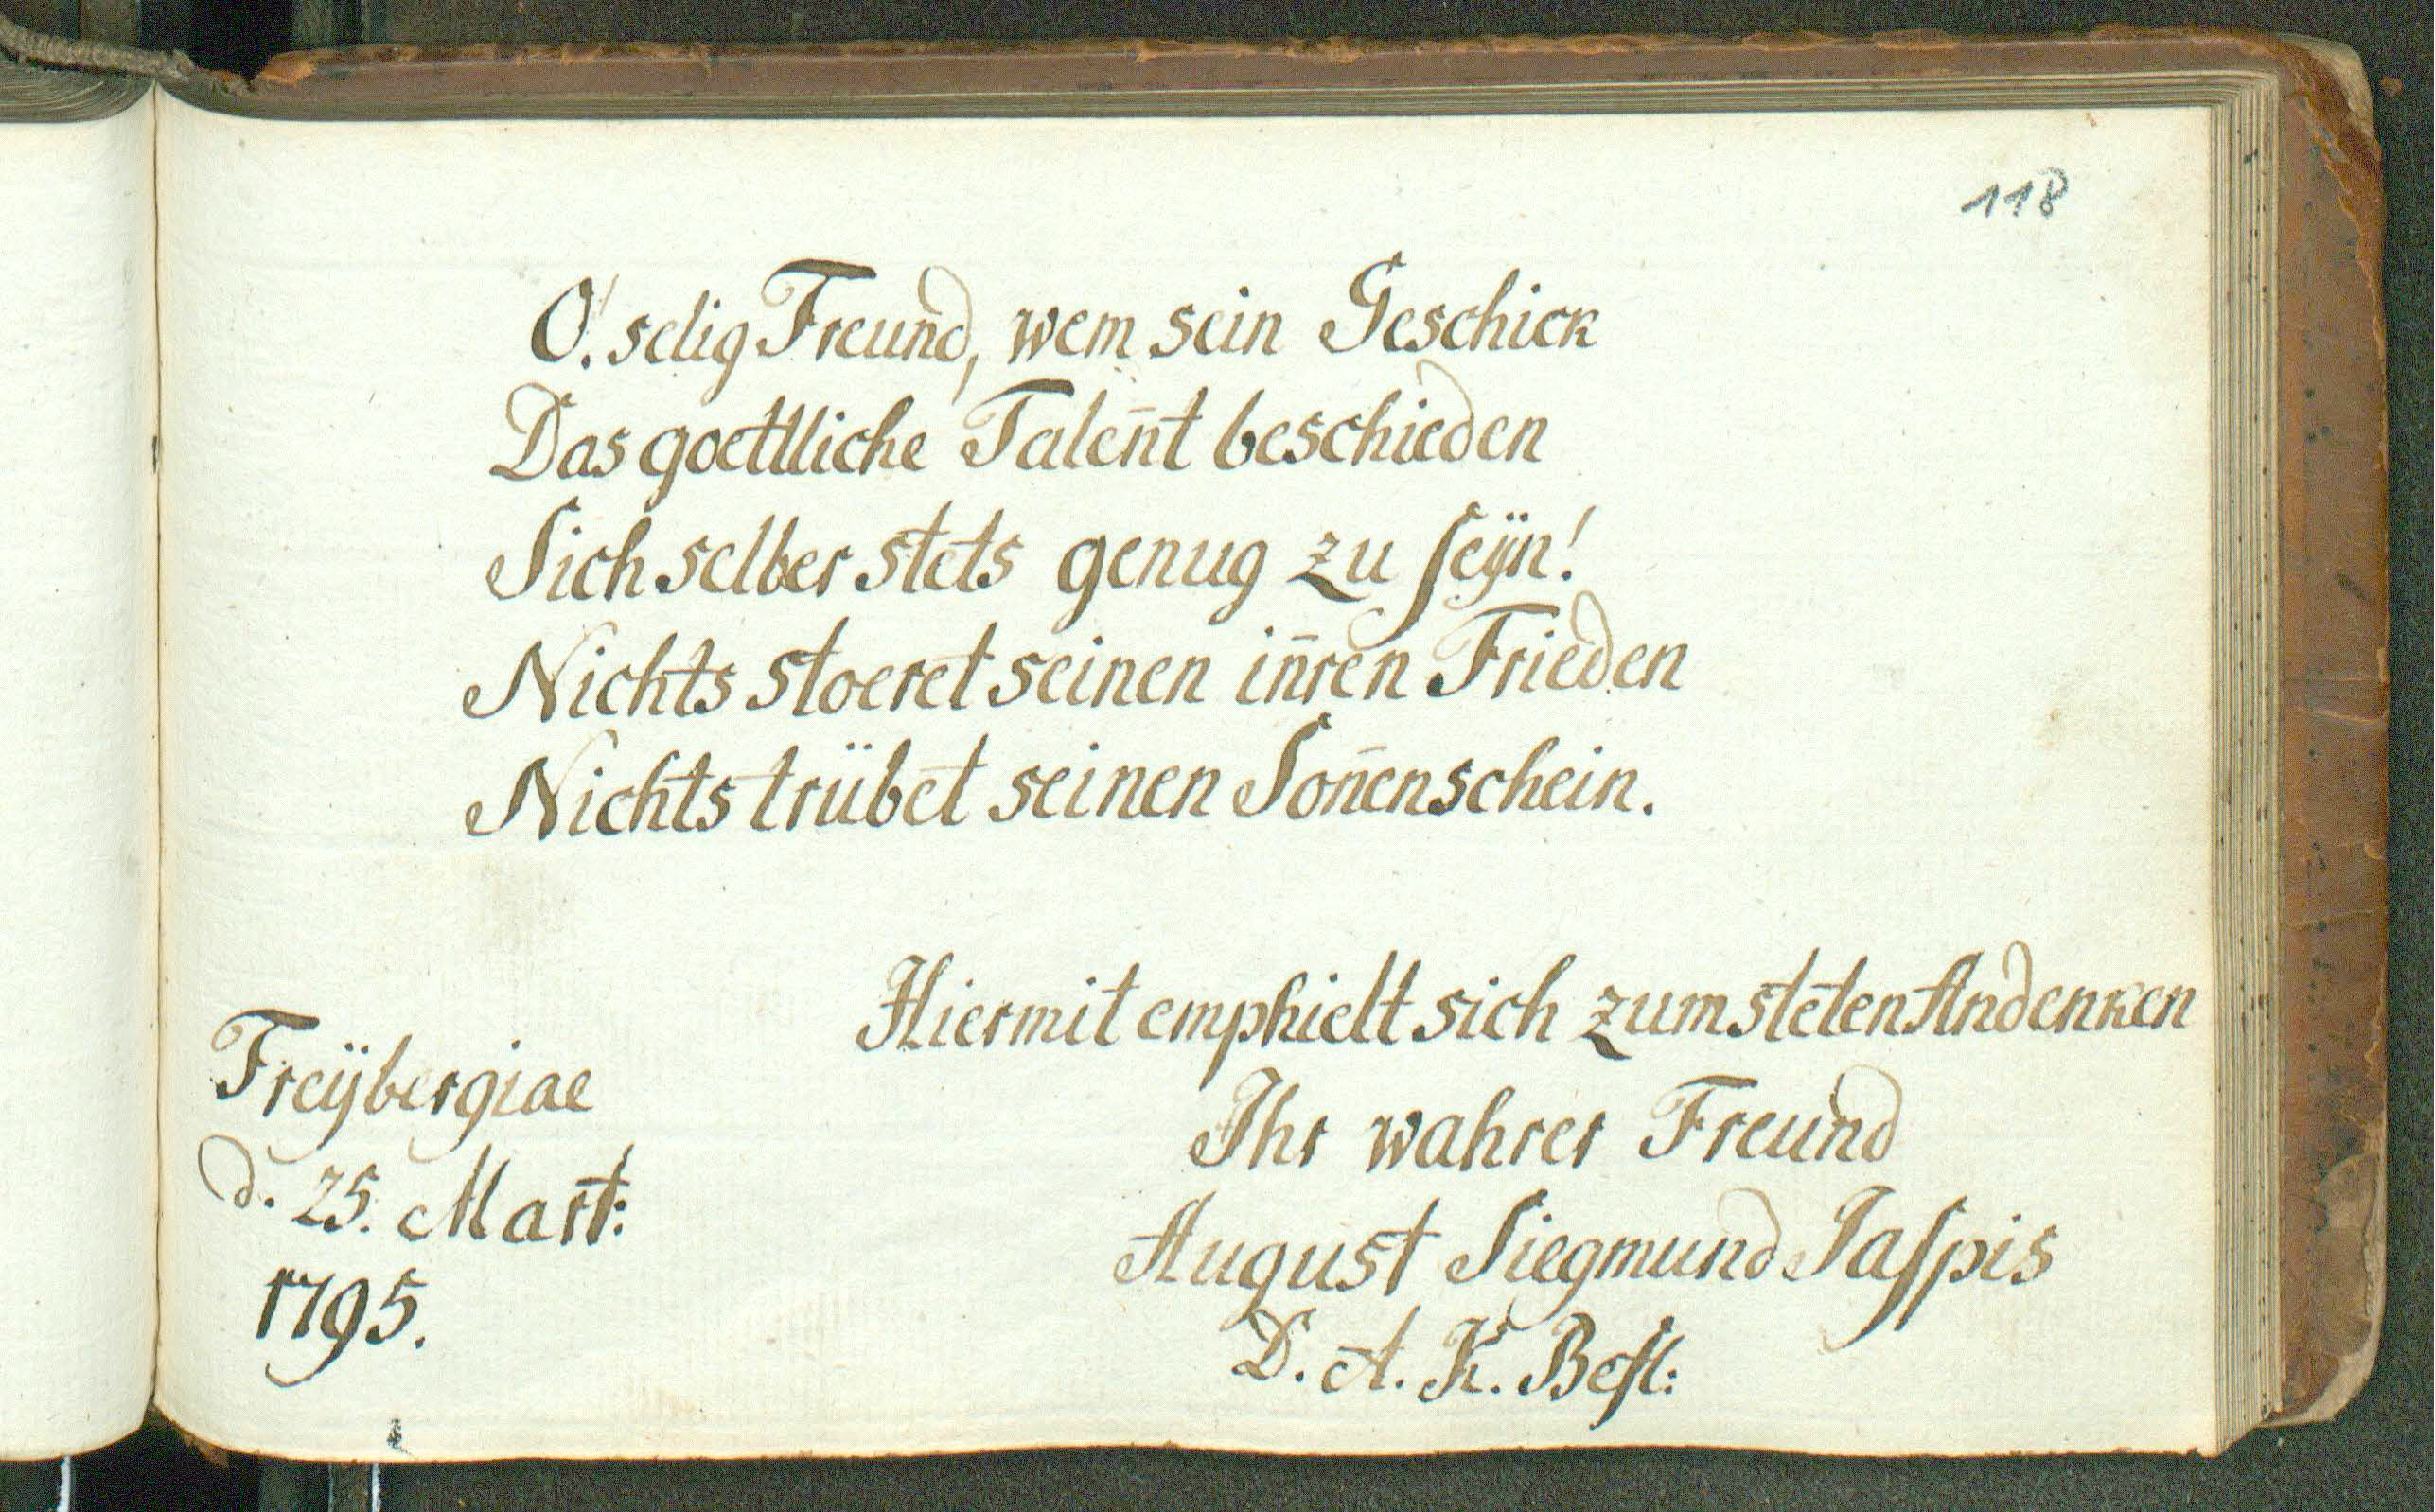 118
O! selig Freund, wem sein Geschick
Das goettliche Talen̄t beschieden
Sich selber stets genug zu ſeÿn!
Nichts stoeret seinen in̄ren Frieden
Nichts trübet seinen Son̄enschein.
Hiermit emphielt sich zum steten Andenken
Ihr wahrer Freund
August Siegmund Jaſpis
D. A. K. Befl:
Freÿbergiae
d. 25. Mart:
1795.